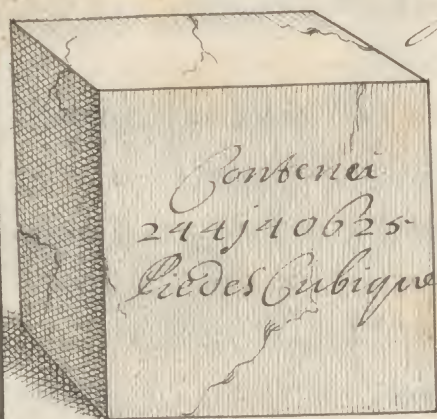 Contenei
244140625
Piedes Cubique